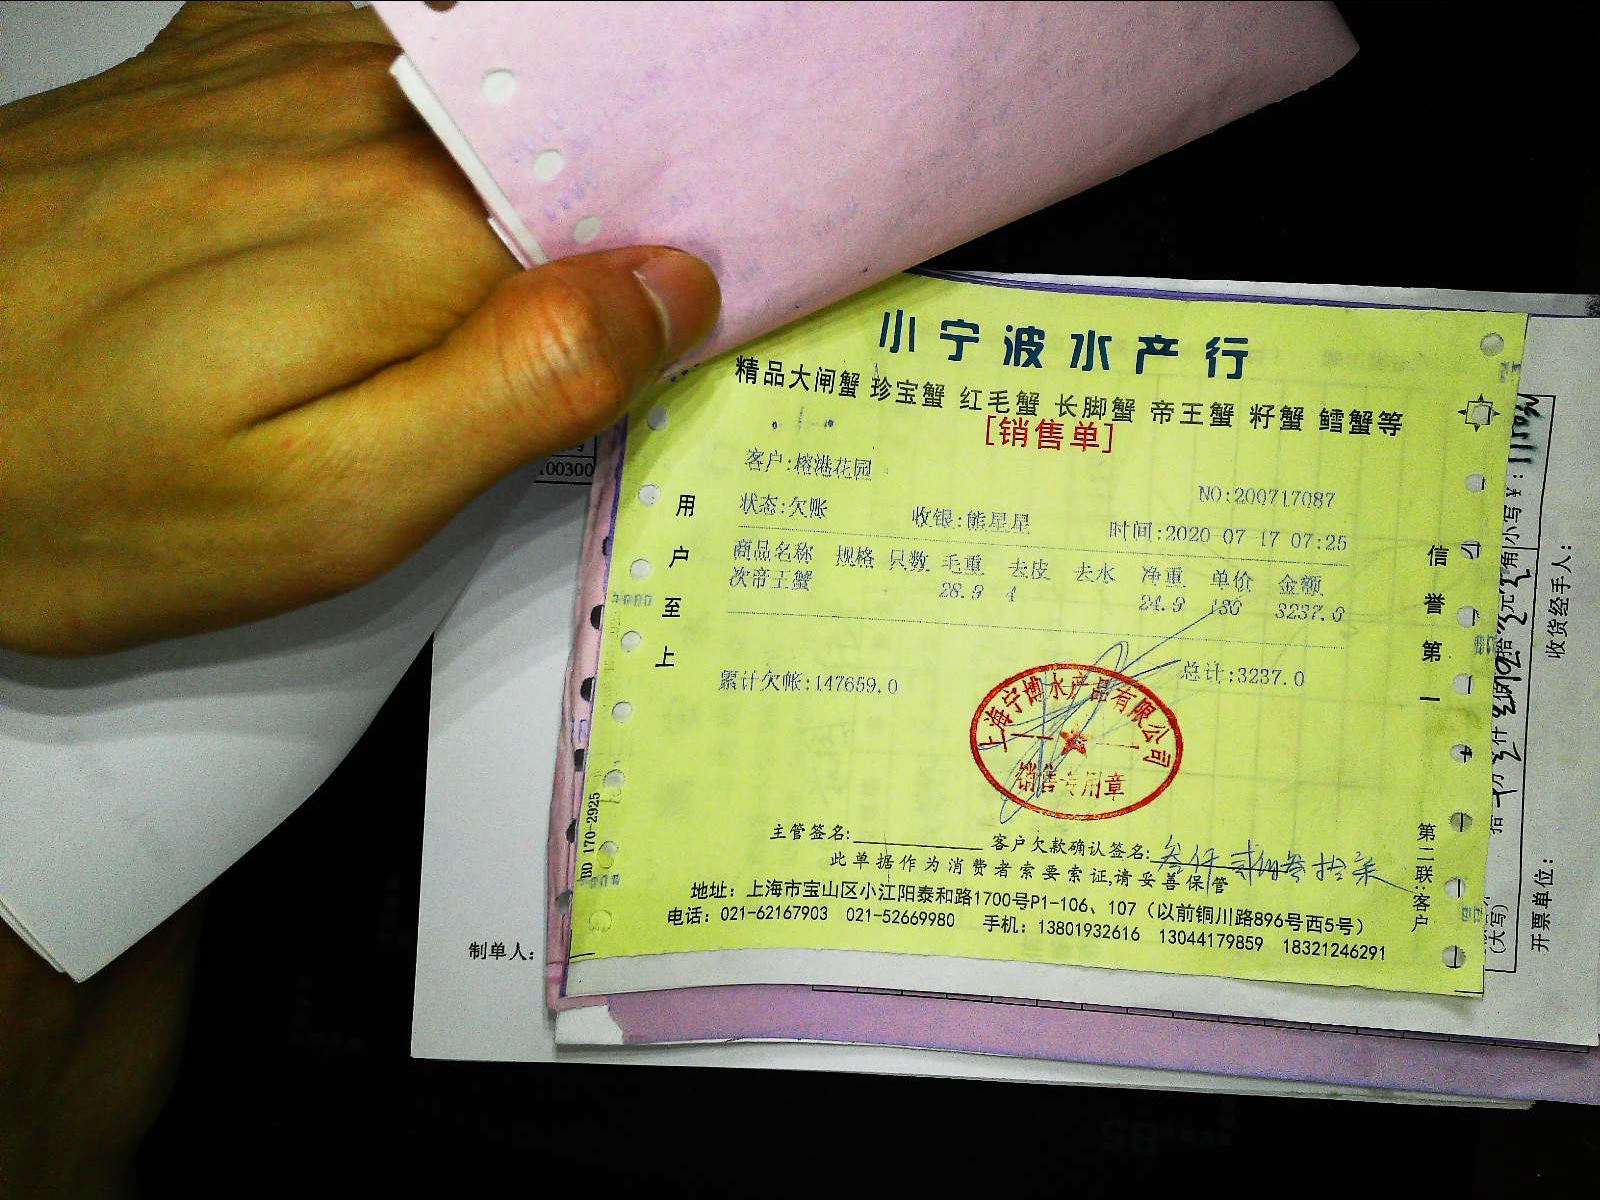 小宁波水产行
精品大闸蟹 珍宝蟹 红毛蟹 长脚蟹 帝王蟹 籽蟹 鳕蟹等
[销售单]
客户:榕港花园
NO:200717087
状态:欠账 收银:熊星星 时间:2020-07-17 07:25
商品名称 规格 只数 毛重 去皮 去水 净重 单价 金额
次帝王蟹 28.9 4 24.9 130 3237.0
累计欠帐:147659.0 总计:3237.0
上海宁博水产品有限公司
销售专用章
主管签名: 客户欠款确认签名: 叁仟贰佰叁拾柒
此单据作为消费者索要索证,请妥善保管
地址：上海市宝山区小江阳泰和路1700号P1-106、107（以前铜川路896号西5号）
电话：021-62167903 021-52669980 手机：13801932616 13044179859 18321246291
用户至上
信誉第一
第二联:客户
BD 170-2925
00300
制单人：
收货经手人：
开票单位：
(大写)